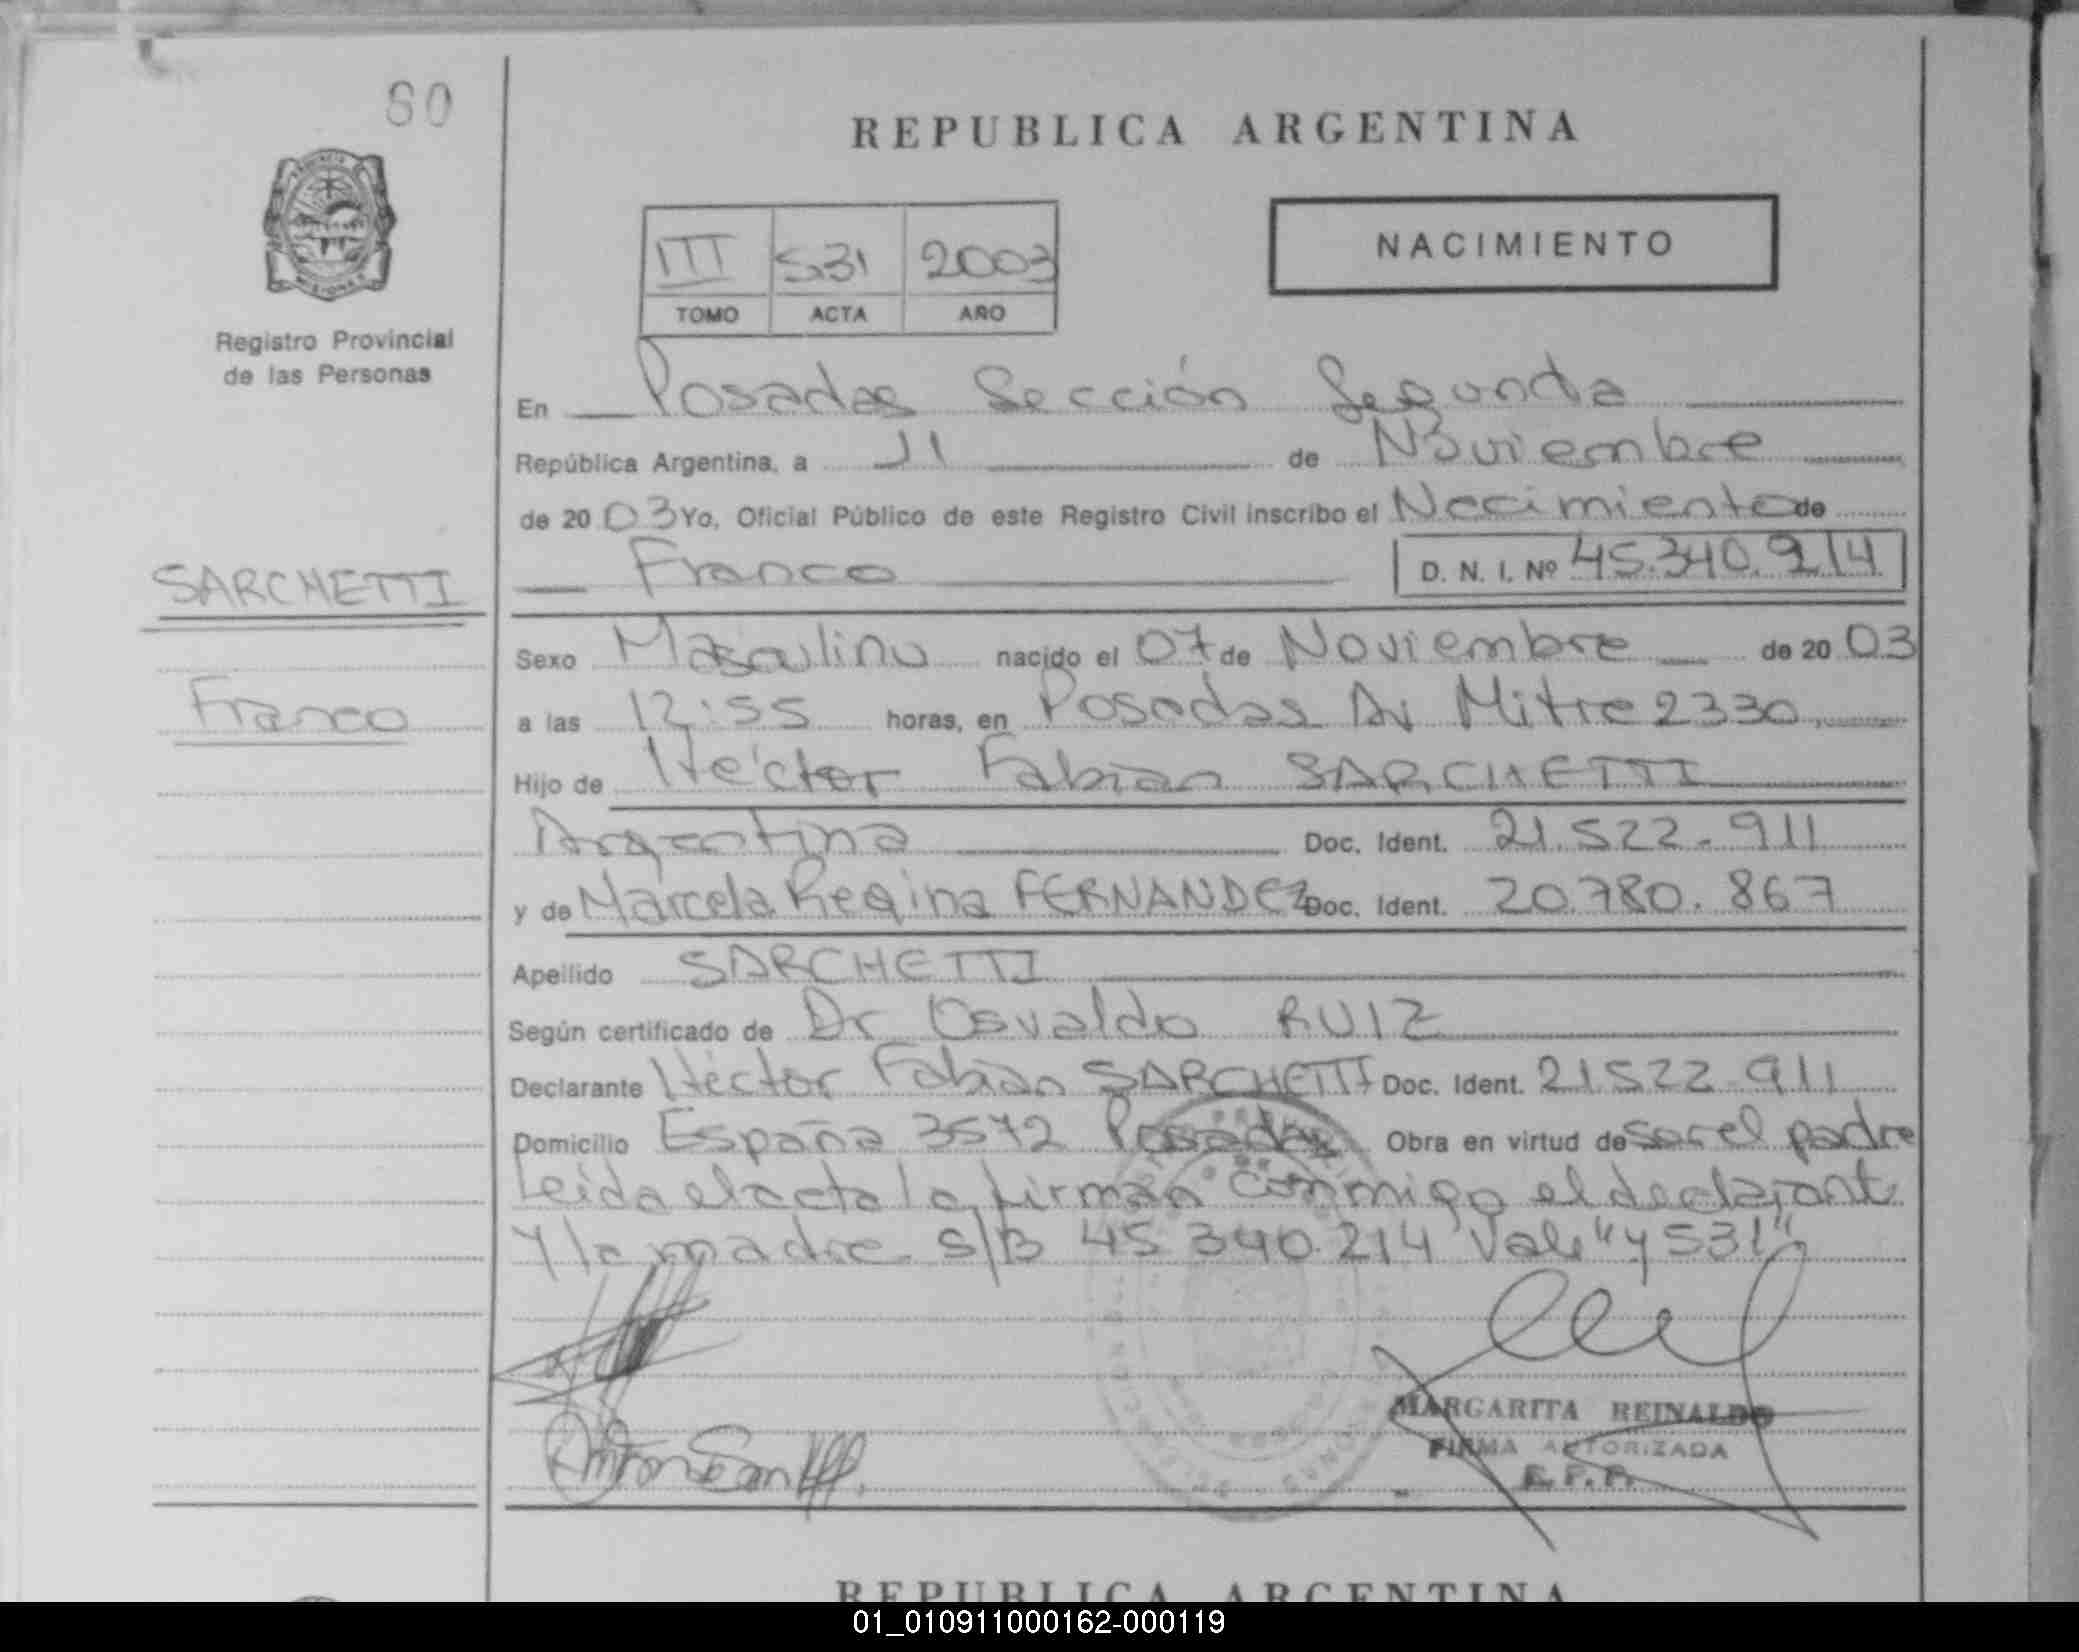 60
REPUBLICA ARGENTINA
NACIMIENTO
III 531 2003
TOMO ACTA AÑO
Registro Provincial
de las Personas
En Posadas Sección Segunda
República Argentina, a 11 de Noviembre
de 20 03 Yo, Oficial Público de este Registro Civil inscribo el Nacimiento de
Franco D. N. I. Nº 45.340.214
SARCHETTI
Franco
Sexo Masculino nacido el 07 de Noviembre de 20 03
a las 12:55 horas, en Posadas Av Mitre 2330
Hijo de Héctor Fabián SARCHETTI
Argentina Doc. Ident. 21.522.911
y de Marcela Regina FERNANDEZ Doc. Ident. 20.780.867
Apellido SARCHETTI
Según certificado de Dr Osvaldo RUIZ
Declarante Héctor Fabián SARCHETTI Doc. Ident. 21.522.911
Domicilio España 3572 Posadas Obra en virtud de ser el padre
Leida el acta la firman conmigo el declarante
y la madre S/B 45 340.214 Vale "y 531"
MARGARITA REINALDO
FIRMA AUTORIZADA
R.P.P.
REPUBLICA ARGENTINA
01_010911000162-000119